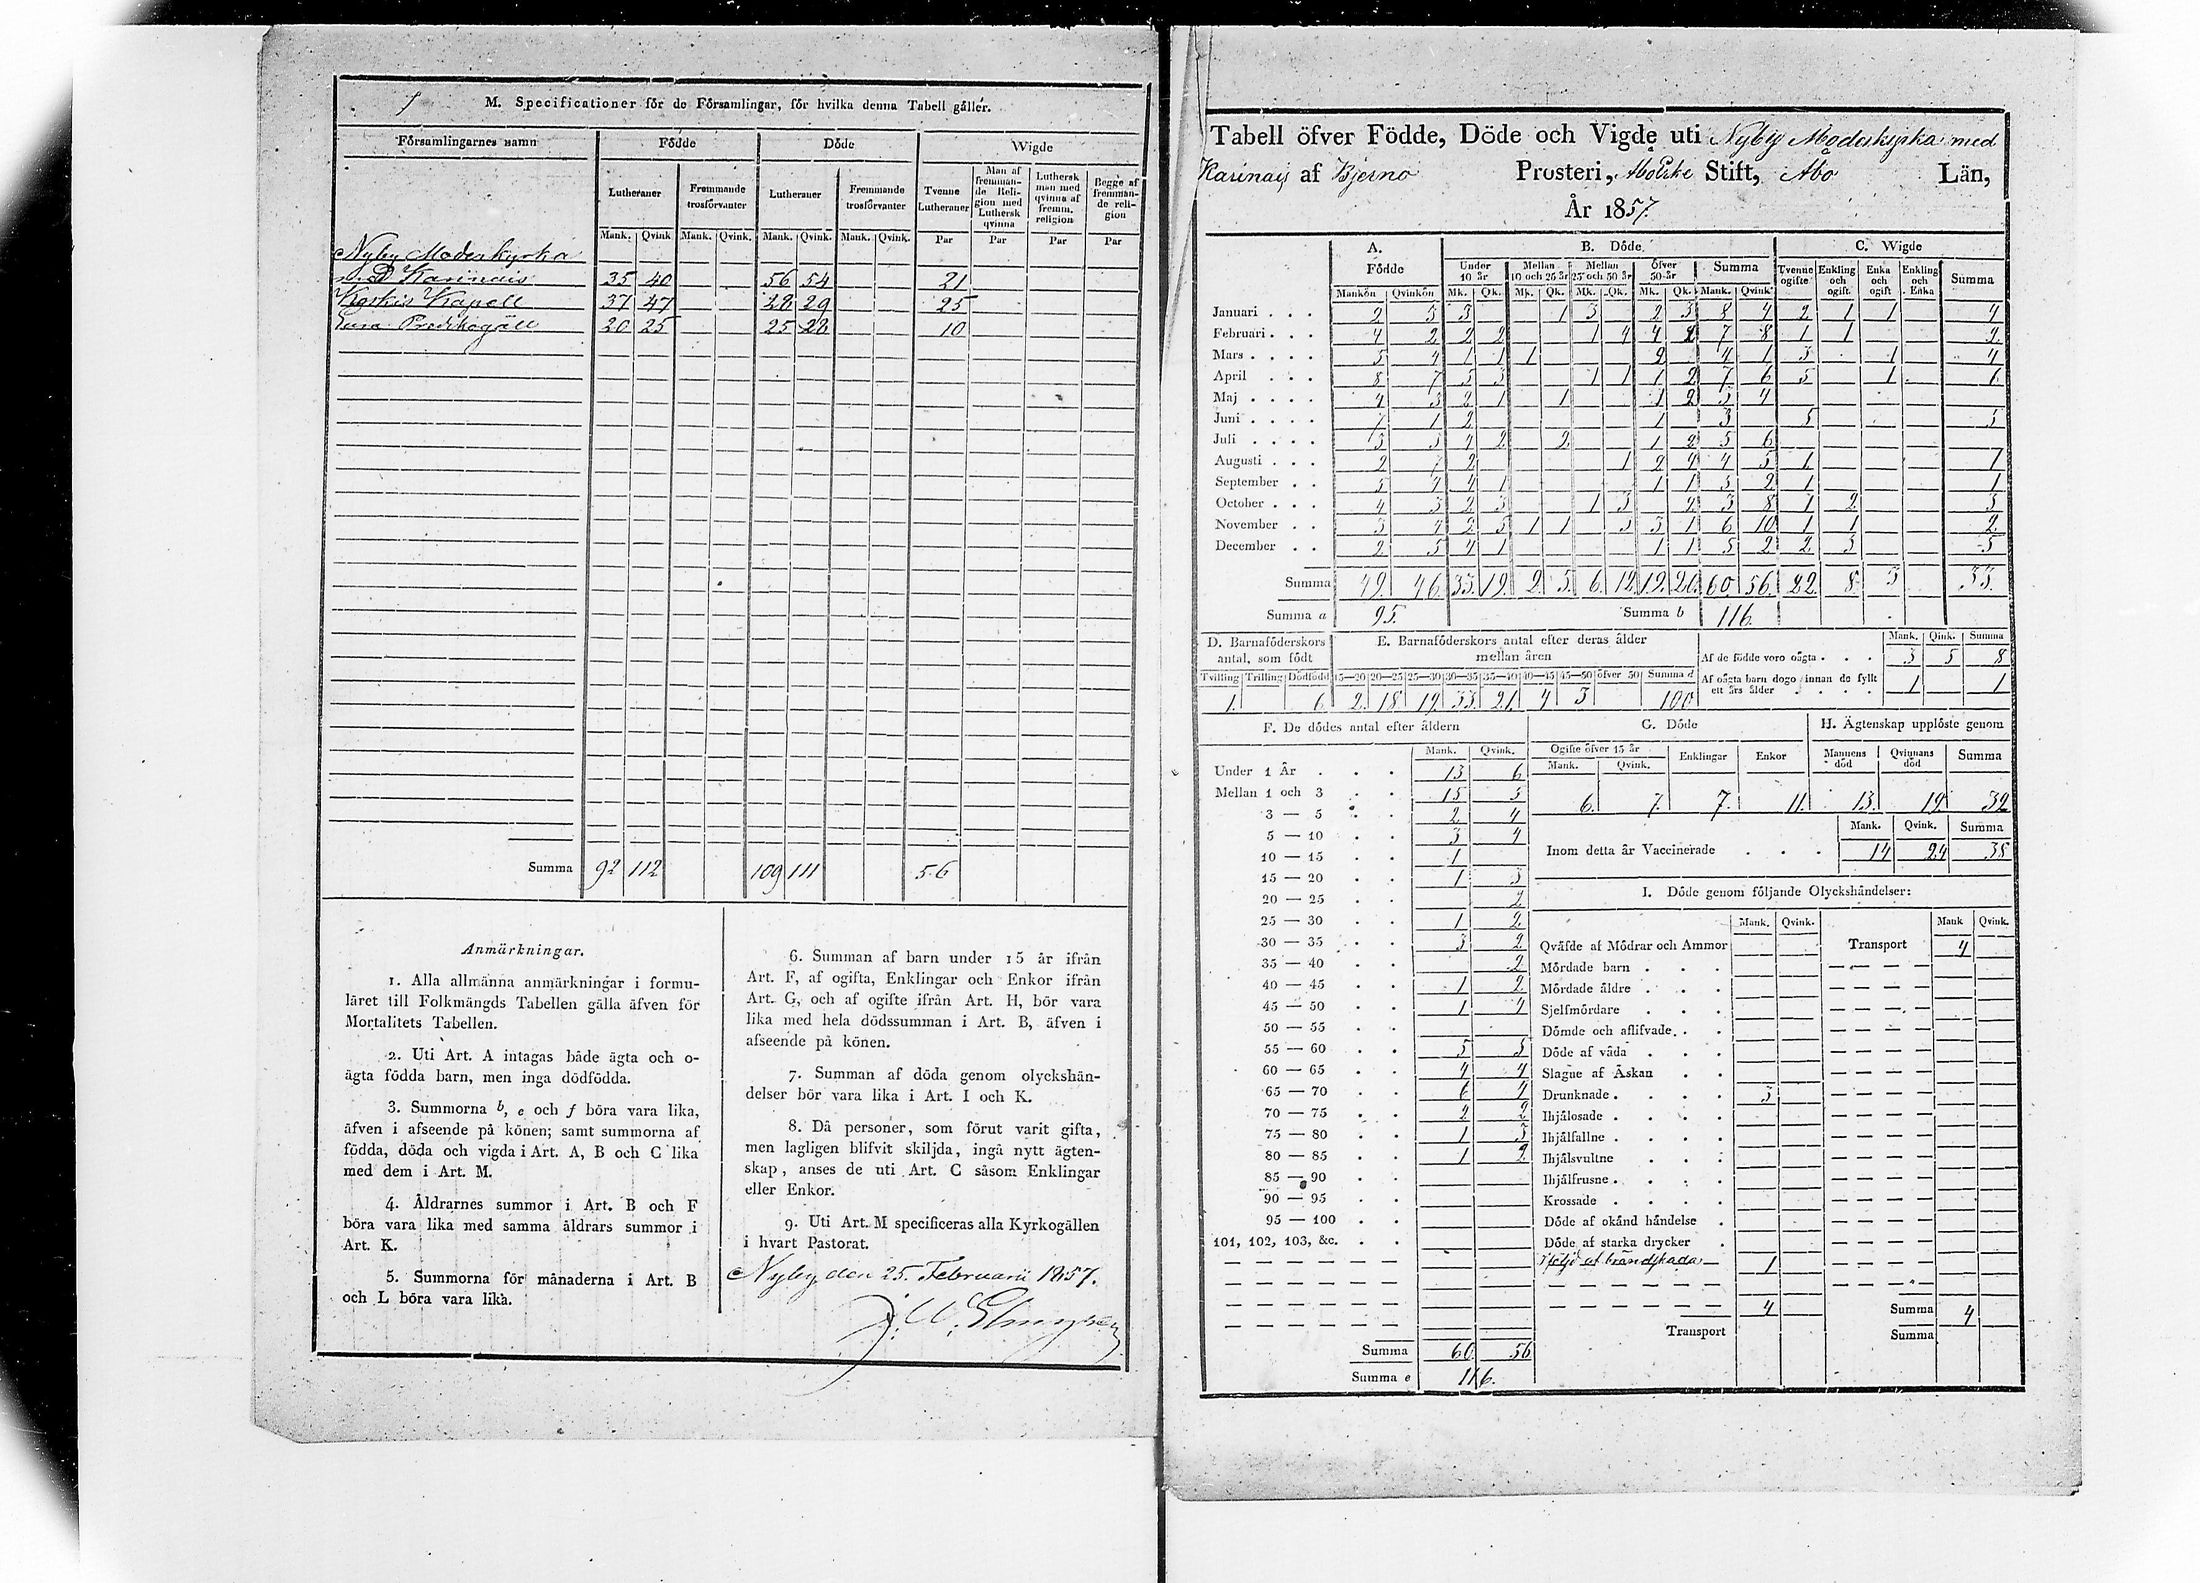 M. Specificationer för de Församlingar, för hvilka denna Tabell gäller.
Församlingarnes namn Födde Döde Wigde
Lutheraner Fremmande trosförvanter Lutheraner Fremmande trosförvanter Tvenne Lutheraner Man af fremmande Religion med Luthersk qvinna Luthersk man med qvinna af fremm. religion Begge af fremmande religion
Mank. Qvink Mank. Qvink. Mank. Qvink. Mank. Qvink. Par Par Par Par
Nyby Moderkyrka
med Karinais 35 40 56 54 21
Koskis Kapell 37 47 28 29 25
20 25 25 28 10
Summa 92 112 109 111 56
Anmärkningar.
1. Alla allmänna anmärkningar i formu-
läret till Folkmängds Tabellen gälla äfven för
Mortalitets Tabellen.
2. Uti Art. A intagas både ägta och o-
ägta födda barn, men inga dödfödda.
3. Summorna b, e och f böra vara lika,
äfven i afseende på könen; samt summorna af
födda, döda och vigda i Art. A, B och C lika
med dem i Art. M.
4. Åldrarnes summor i Art. B och F
böra vara lika med samma åldrars summor i
Art. K.
5. Summorna för månaderna i Art. B
och L böra vara lika.
6. Summan af barn under 15 år ifrån
Art. F, af ogifta, Enklingar och Enkor ifrån
Art. G, och af ogifte ifrån Art. H, bör vara
lika med hela dödssumman i Art. B, äfven i
afseende på könen.
7. Summan af döda genom olyckshän-
delser bör vara lika i Art. I och K.
8. Då personer, som förut varit gifta,
men lagligen blifvit skiljda, ingå nytt ägten-
skap, anses de uti Art. C såsom Enklingar
eller Enkor.
9. Uti Art. M specificeras alla Kyrkogällen
i hvart Pastorat.
Nyby den 25. Februarii 1857.
Tabell öfver Födde, Döde och Vigde uti Nyby Moderkyrka med
Karinais af Bjerno Prosteri, Åboiske Stift, Åbo Län,
År 1857.
A. Födde B. Döde C. Wigde
Under 10 år Mellan 10 och 25 år Mellan 25 och 50 år Öfver 50 år Summa Tvenne ogifte Enkling och ogift. Enka och ogift Enkling och Enka Summa
Mankön Qvinkön Mk. Qk. Mk. Qk. Mk. Qk. Mk. Qk. Mank. Qvink.
Januari 2 5 3 1 3 2 3 8 4 2 1 1 4
Februari 4 2 2 2 1 4 4 2 7 8 1 1 2
Mars 5 4 1 1 1 2 4 1 3 1 4
April 8 7 5 3 1 1 1 2 7 6 5 1
Maj 4 3 2 1 1 1 2 3 4
Juni 1 2 1 3 5 5
Juli 3 5 4 2 2 1 2 5 6
Augusti 2 7 2 1 2 4 4 5 1 1
September 4 4 1 1 1 2 1 1
October 4 3 2 3 1 3 2 3 8 1 2 3
November 3 4 2 5 1 1 3 3 1 6 10 1 1 2
December 2 5 4 1 1 1 5 2 2 3 5
Summa 49 46 33 19 2 5 6 12 19 20 60 56 22 8 3 33
Summa a 95. Summa b 116.
D. Barnaföderskors antal, som födt
E. Barnaföderskors antal efter deras ålder mellan åren
Mank. Qink. Summa
Af de födde voro oägta 3 5 8
Af oägta barn dogo innan de fyllt ett års ålder 1 1
Tvilling Trilling Dödfödd 15—20 20—25 25—30 30—35 35—40 40—45 45—50 öfver 50 Summa d
1. 6 2 18 19 33 21 4 3 100
F. De dödes antal efter åldern
Mank. Qvink.
Under 1 År 13 6
Mellan 1 och 3 15 5
3 — 5 2 4
5 — 10 3 4
10 — 15 1
15 — 20 1 3
20 — 25 2
25 — 30 1 2
30 — 35 3 2
35 — 40 2
40 — 45 1 2
45 — 50 1 4
50 — 55
55 — 60 5 5
60 — 65 4 4
65 — 70 6 4
70 — 75 2 2
75 — 80 1 3
80 — 85 1 2
85 — 90
90 — 95
95 — 100
101, 102, 103, &c.
Summa 60 56
Summa e 116.
G. Döde
Ogifte öfver 15 år Enklingar Enkor
Mank. Qvink.
6. 7. 7. 11.
H. Ägtenskap upplöste genom
Mannens död Qvinnans död Summa
13. 19 32
Mank. Qvink. Summa
Inom detta år Vaccinerade 14 24 38
I. Döde genom följande Olyckshändelser:
Mank. Qvink. Mank Qvink.
Qväfde af Mödrar och Ammor Transport 4
Mördade barn
Mördade äldre
Sjelfmördare
Dömde och aflifvade
Döde af våda
Slagne af Åskan
Drunknade 3
Ihjälosade
Ihjälfallne
Ihjälsvultne
Ihjälfrusne
Krossade
Döde af okänd händelse
Döde af starka drycker
af brändskada 1
4 Summa 4
Transport Summa